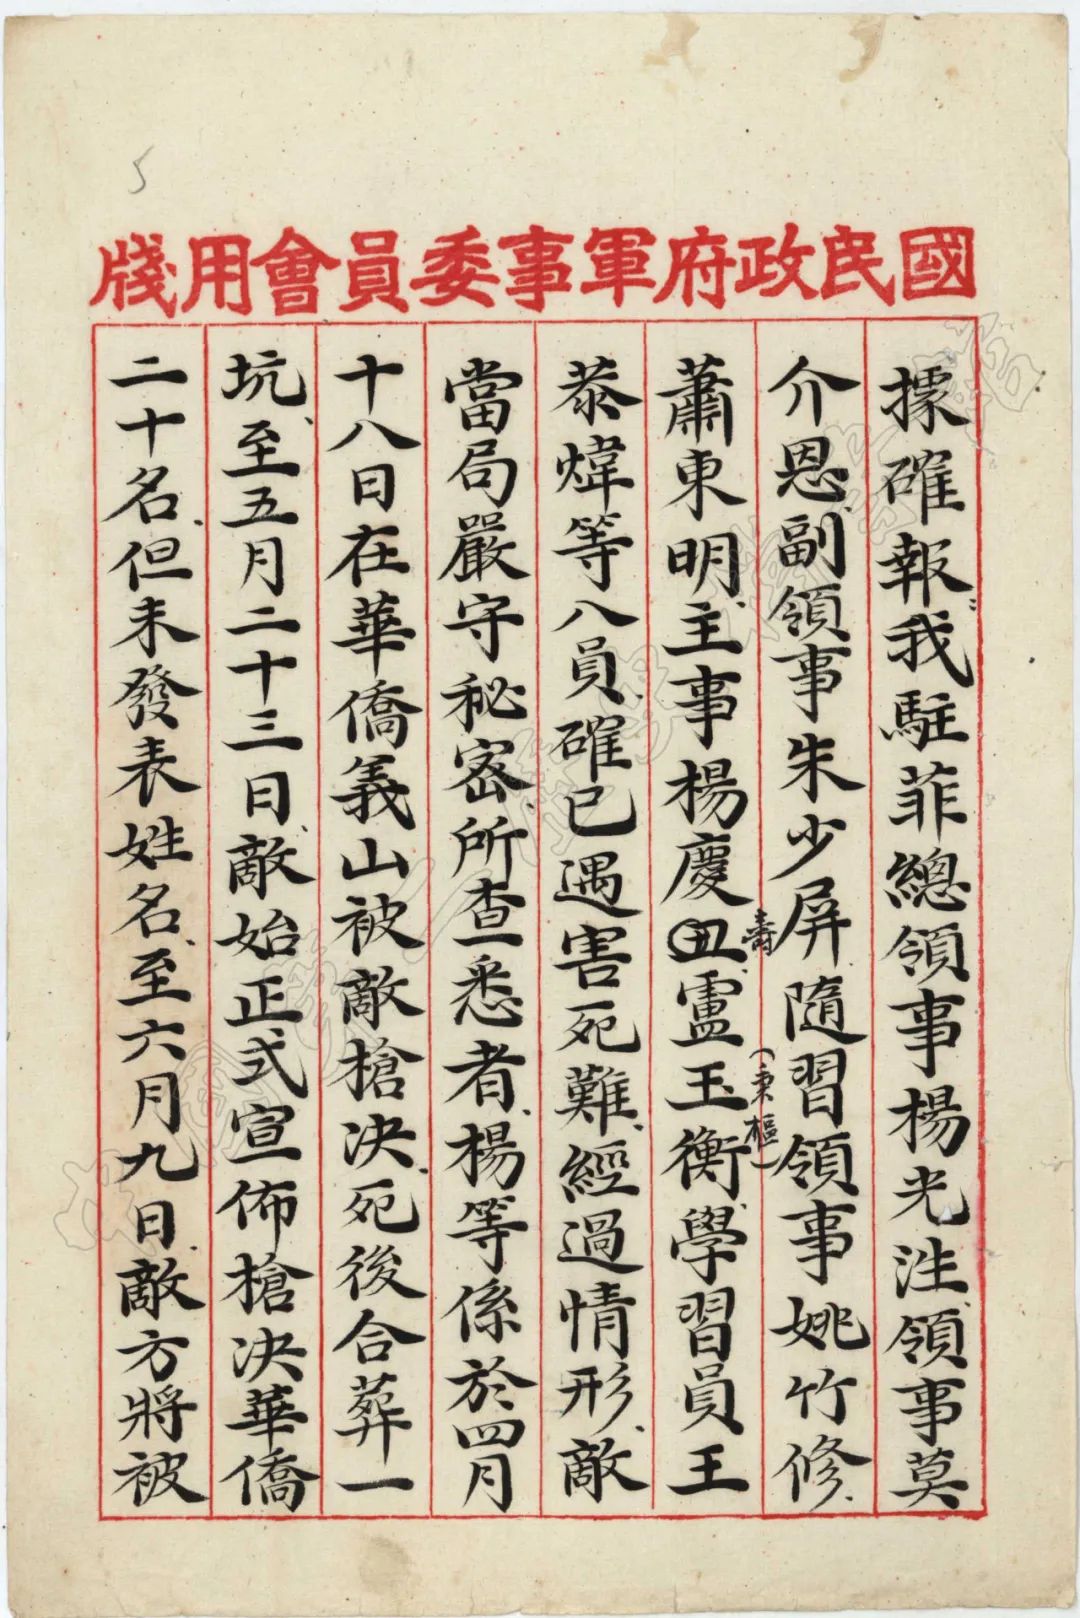 5
國民政府軍事委員會用牋
據確報我駐菲總領事楊光泩領事莫
介恩副領事朱少屏隨習領事姚竹修
蕭東明主事楊慶丑壽盧玉衡(秉樞)學習員王
恭煒等八員確已遇害死難經過情形敵
當局嚴守秘密所查悉者楊等係於四月
十八日在華僑義山被敵槍決死後合葬一
坑至五月二十三日敵始正式宣佈槍決華僑
二十名但未發表姓名至六月九日敵方將被